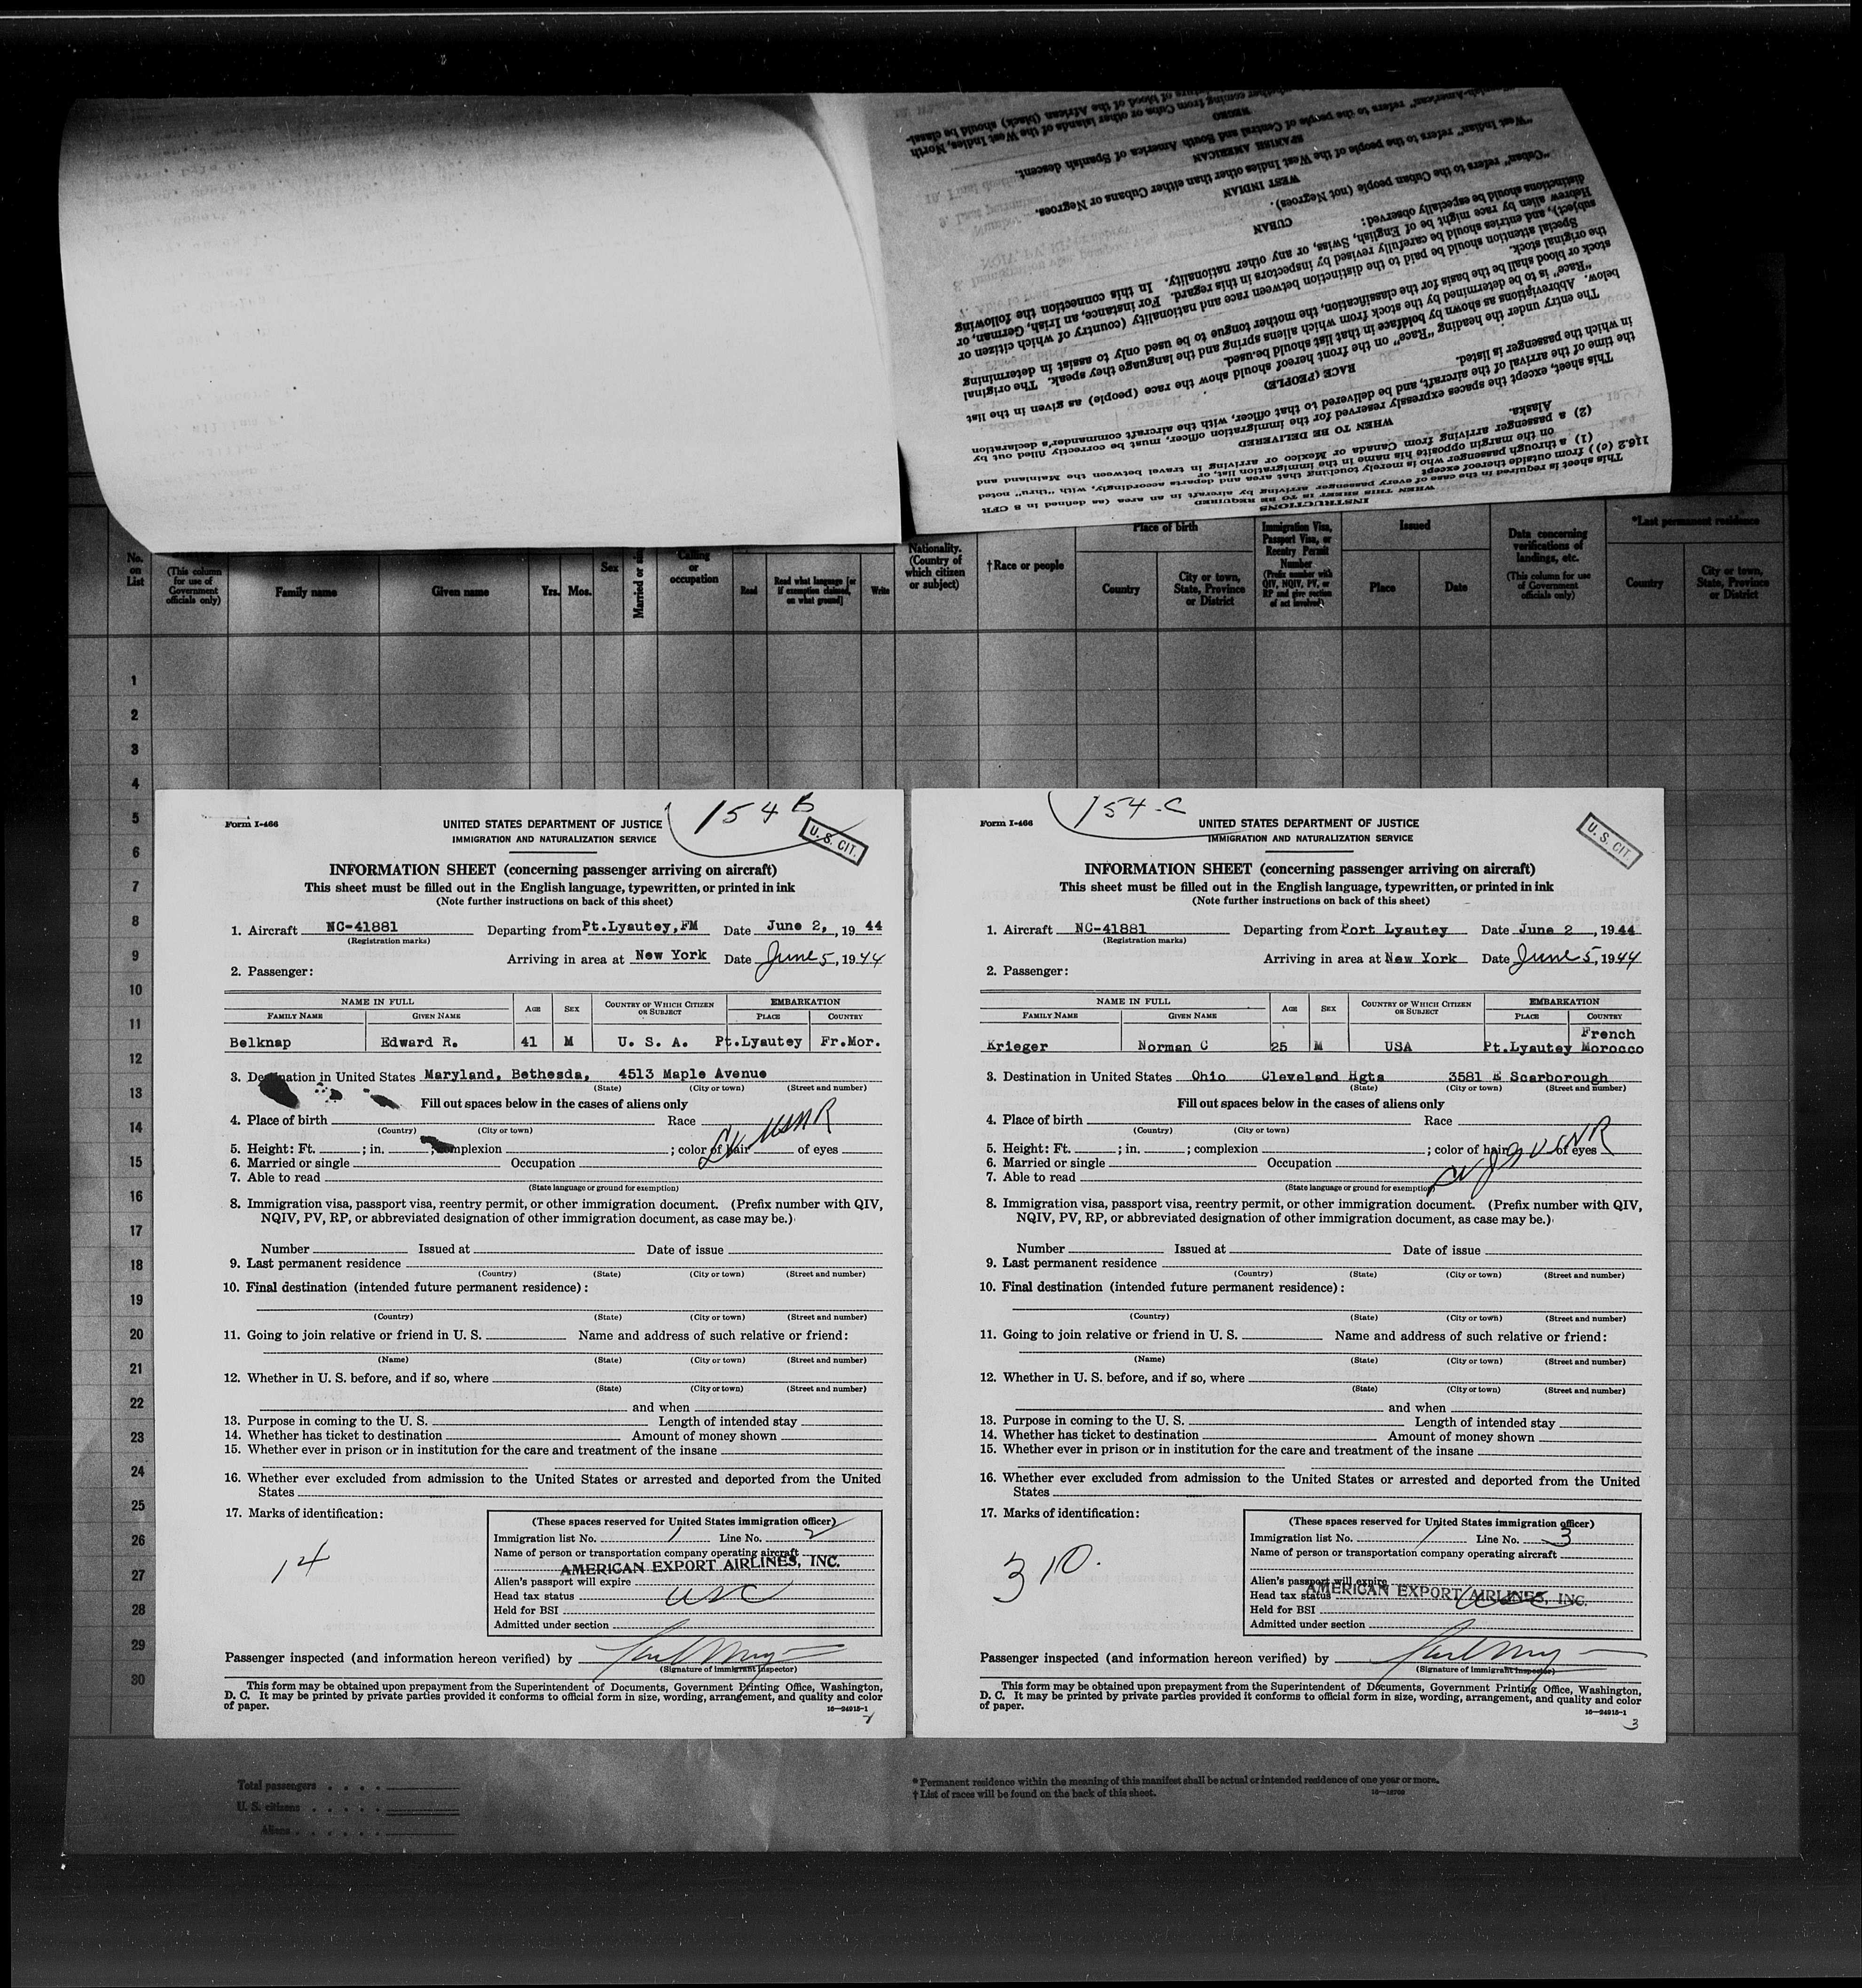 INSTRUCTIONS
WHEN THIS SHEET IS TO BE REQUIRED
This sheet is required in the case of every passenger arriving by aircraft in an area (as defined in 8 CFR
116.2 (c)) from outside thereof except
(1) a through passenger who is merely touching that area and departs accordingly, with "thru" noted
on the margin opposite his name in the immigration list, or
(2) a passenger arriving from Canada or Mexico or arriving in travel between the Mainland and
Alaska.
WHEN TO BE DELIVERED
This sheet, except the spaces expressly reserved for the immigration officer, must be correctly filled out by
the time of the arrival of the aircraft, and be delivered to that officer, with the aircraft commander's declaration
in which the passenger is listed.
RACE (PEOPLE)
The entry under the heading "Race" on the front hereof should show the race (people) as given in the list
below. Abbreviations as shown by boldface in that list should be used.
"Race" is to be determined by the stock from which aliens spring and the language they speak. The original
stock or blood shall be the basis for the classification, the mother tongue to be used only to assist in determining
the original stock.
Special attention should be paid to the distinction between race and nationality (country of which citizen or
subject), and entries should be carefully revised by inspectors in this regard. For instance, an Irish, German, or
Hebrew alien by race might be of English, Swiss, or any other nationality. In this connection the following
distinctions should be especially observed:
CUBAN
"Cuban" refers to the Cuban people (not Negroes).
WEST INDIAN
"West Indian" refers to the people of the West Indies other than either Cubans or Negroes.
SPANISH AMERICAN
refers to the people of Central and South America of Spanish descent.
NEGRO
coming from Cuba or other islands of the West Indies, North
of blood of the African (black) should be class-
No. on List
(This column for use of Government officials only)
Family name
Given name
Yrs. Mos.
Sex
Calling or occupation
Read
Read what language [or if exemption claimed, on what ground]
Write
Nationality. (Country of which citizen or subject)
†Race or people
Place of birth
Country
City or town, State, Province or District
Immigration Visa, Passport Visa, or Reentry Permit Number
(Prefix number with QIV, NQIV, PV, or RP and give section of act involved)
Issued
Place
Date
Data concerning verifications of landings, etc.
(This column for use of Government officials only)
*Last permanent residence
Country
City or town, State, Province or District
1
2
3
4
5
6
7
8
9
10
11
12
13
14
15
16
17
18
19
20
21
22
23
24
25
26
27
28
29
30
154 B
Form I-466
UNITED STATES DEPARTMENT OF JUSTICE
IMMIGRATION AND NATURALIZATION SERVICE
U. S. CIT.
INFORMATION SHEET (concerning passenger arriving on aircraft)
This sheet must be filled out in the English language, typewritten, or printed in ink
(Note further instructions on back of this sheet)
1. Aircraft NC-41881 Departing from Pt.Lyautey,FM Date June 2, 1944
(Registration marks)
Arriving in area at New York Date June 5, 1944
2. Passenger:
NAME IN FULL AGE SEX COUNTRY OF WHICH CITIZEN OR SUBJECT EMBARKATION
FAMILY NAME GIVEN NAME PLACE COUNTRY
Belknap Edward R. 41 M U. S. A. Pt.Lyautey Fr.Mor.
3. Destination in United States Maryland, Bethesda, 4513 Maple Avenue
(State) (City or town) (Street and number)
Fill out spaces below in the cases of aliens only
4. Place of birth Race
(Country) (City or town)
USNR
5. Height: Ft. ; in. ; complexion ; color of hair of eyes
6. Married or single Occupation
7. Able to read
(State language or ground for exemption)
8. Immigration visa, passport visa, reentry permit, or other immigration document. (Prefix number with QIV,
NQIV, PV, RP, or abbreviated designation of other immigration document, as case may be.)
Number Issued at Date of issue
9. Last permanent residence
(Country) (State) (City or town) (Street and number)
10. Final destination (intended future permanent residence):
(Country) (State) (City or town) (Street and number)
11. Going to join relative or friend in U. S. Name and address of such relative or friend:
(Name) (State) (City or town) (Street and number)
12. Whether in U. S. before, and if so, where
(State) (City or town) (Street and number)
and when
13. Purpose in coming to the U. S. Length of intended stay
14. Whether has ticket to destination Amount of money shown
15. Whether ever in prison or in institution for the care and treatment of the insane
16. Whether ever excluded from admission to the United States or arrested and deported from the United
States
17. Marks of identification:
14
(These spaces reserved for United States immigration officer)
Immigration list No. 1 Line No. 2
Name of person or transportation company operating aircraft
AMERICAN EXPORT AIRLINES, INC.
Alien's passport will expire
Head tax status usc
Held for BSI
Admitted under section
Passenger inspected (and information hereon verified) by
(Signature of immigrant inspector)
This form may be obtained upon prepayment from the Superintendent of Documents, Government Printing Office, Washington,
D. C. It may be printed by private parties provided it conforms to official form in size, wording, arrangement, and quality and color
of paper.
16—24915-1
154-C
Form I-466
UNITED STATES DEPARTMENT OF JUSTICE
IMMIGRATION AND NATURALIZATION SERVICE
U. S. CIT.
INFORMATION SHEET (concerning passenger arriving on aircraft)
This sheet must be filled out in the English language, typewritten, or printed in ink
(Note further instructions on back of this sheet)
1. Aircraft NC-41881 Departing from Port Lyautey Date June 2, 1944
(Registration marks)
Arriving in area at New York Date June 5, 1944
2. Passenger:
NAME IN FULL AGE SEX COUNTRY OF WHICH CITIZEN OR SUBJECT EMBARKATION
FAMILY NAME GIVEN NAME PLACE COUNTRY
Krieger Norman C 25 M USA Pt.Lyautey French Morocco
3. Destination in United States Ohio Cleveland Hgts 3581 E Scarborough
(State) (City or town) (Street and number)
Fill out spaces below in the cases of aliens only
4. Place of birth Race
(Country) (City or town)
USNR
5. Height: Ft. ; in. ; complexion ; color of hair of eyes
6. Married or single Occupation
7. Able to read
(State language or ground for exemption)
8. Immigration visa, passport visa, reentry permit, or other immigration document. (Prefix number with QIV,
NQIV, PV, RP, or abbreviated designation of other immigration document, as case may be.)
Number Issued at Date of issue
9. Last permanent residence
(Country) (State) (City or town) (Street and number)
10. Final destination (intended future permanent residence):
(Country) (State) (City or town) (Street and number)
11. Going to join relative or friend in U. S. Name and address of such relative or friend:
(Name) (State) (City or town) (Street and number)
12. Whether in U. S. before, and if so, where
(State) (City or town) (Street and number)
and when
13. Purpose in coming to the U. S. Length of intended stay
14. Whether has ticket to destination Amount of money shown
15. Whether ever in prison or in institution for the care and treatment of the insane
16. Whether ever excluded from admission to the United States or arrested and deported from the United
States
17. Marks of identification:
310.
(These spaces reserved for United States immigration officer)
Immigration list No. 1 Line No. 3
Name of person or transportation company operating aircraft
Alien's passport will expire
AMERICAN EXPORT AIRLINES, INC.
Head tax status usc
Held for BSI
Admitted under section
Passenger inspected (and information hereon verified) by
(Signature of immigrant inspector)
This form may be obtained upon prepayment from the Superintendent of Documents, Government Printing Office, Washington,
D. C. It may be printed by private parties provided it conforms to official form in size, wording, arrangement, and quality and color
of paper.
16—24915-1
3
Total passengers . . . .
U. S. citizens . . . . .
Aliens . . . . . .
* Permanent residence within the meaning of this manifest shall be actual or intended residence of one year or more.
† List of races will be found on the back of this sheet.